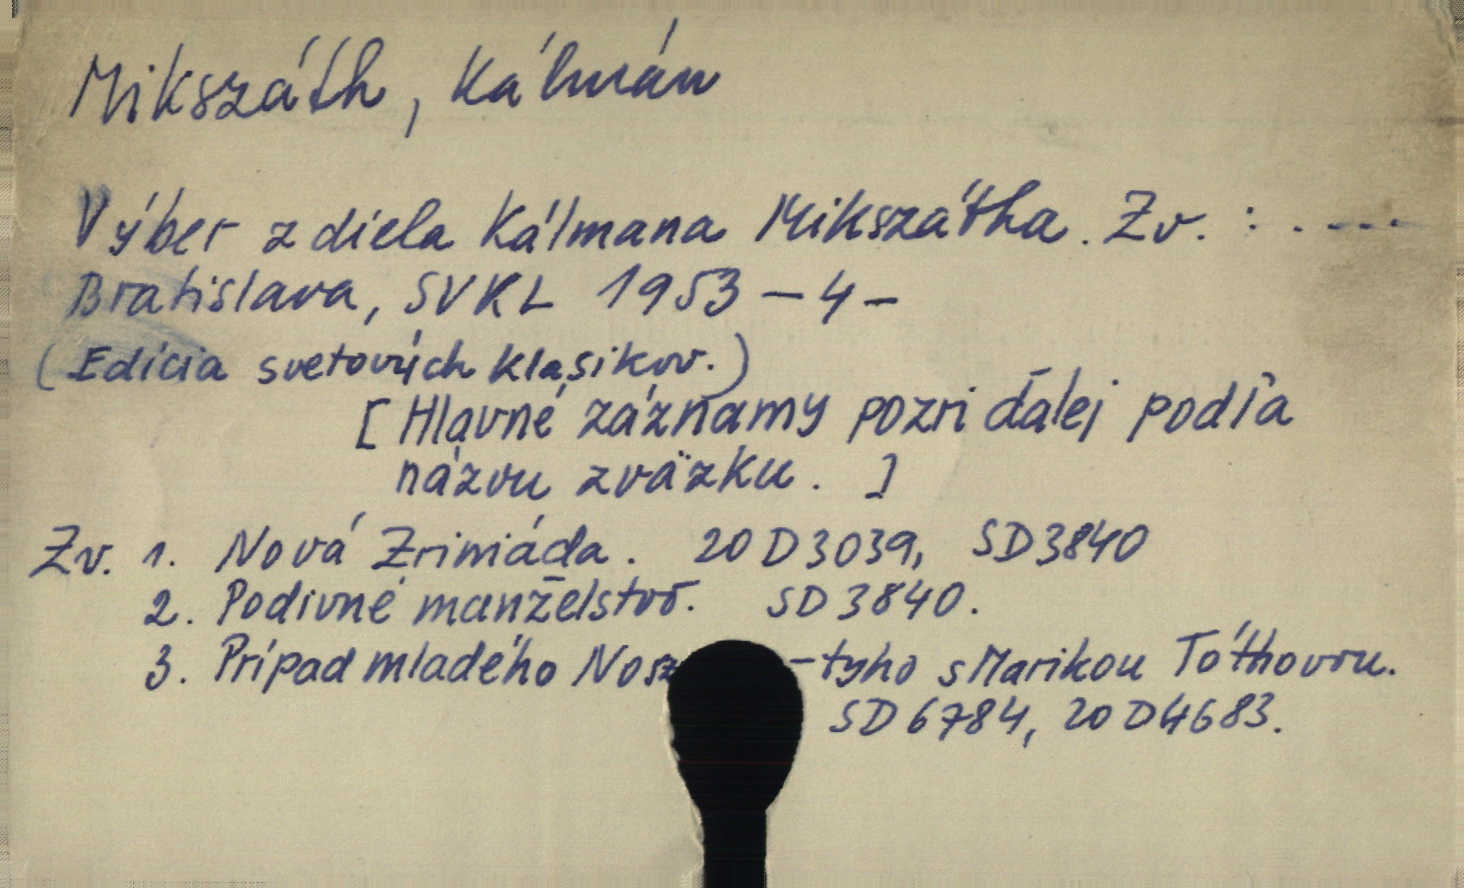 Mikszáth, Kálmán
Výber z diela Kálmana Mikszátha. Zv. : . - - -
Bratislava, SVKL 1953 - 4 -
(Edícia svetových klasikov.)
[Hlavné záznamy pozri ďalej podľa
názvu zväzku. ]
Zv. 1. Nová Zriniáda. 20 D 3039, SD 3840
2. Podivné manželstvo. SD 3840.
3. Prípad mladého Nosz -tyho s Marikou Tóthovou.
SD 6784, 20 D 4683.